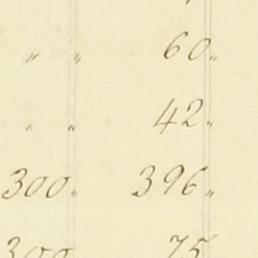 " " 60"
" " 42"
300" 396"
300 75